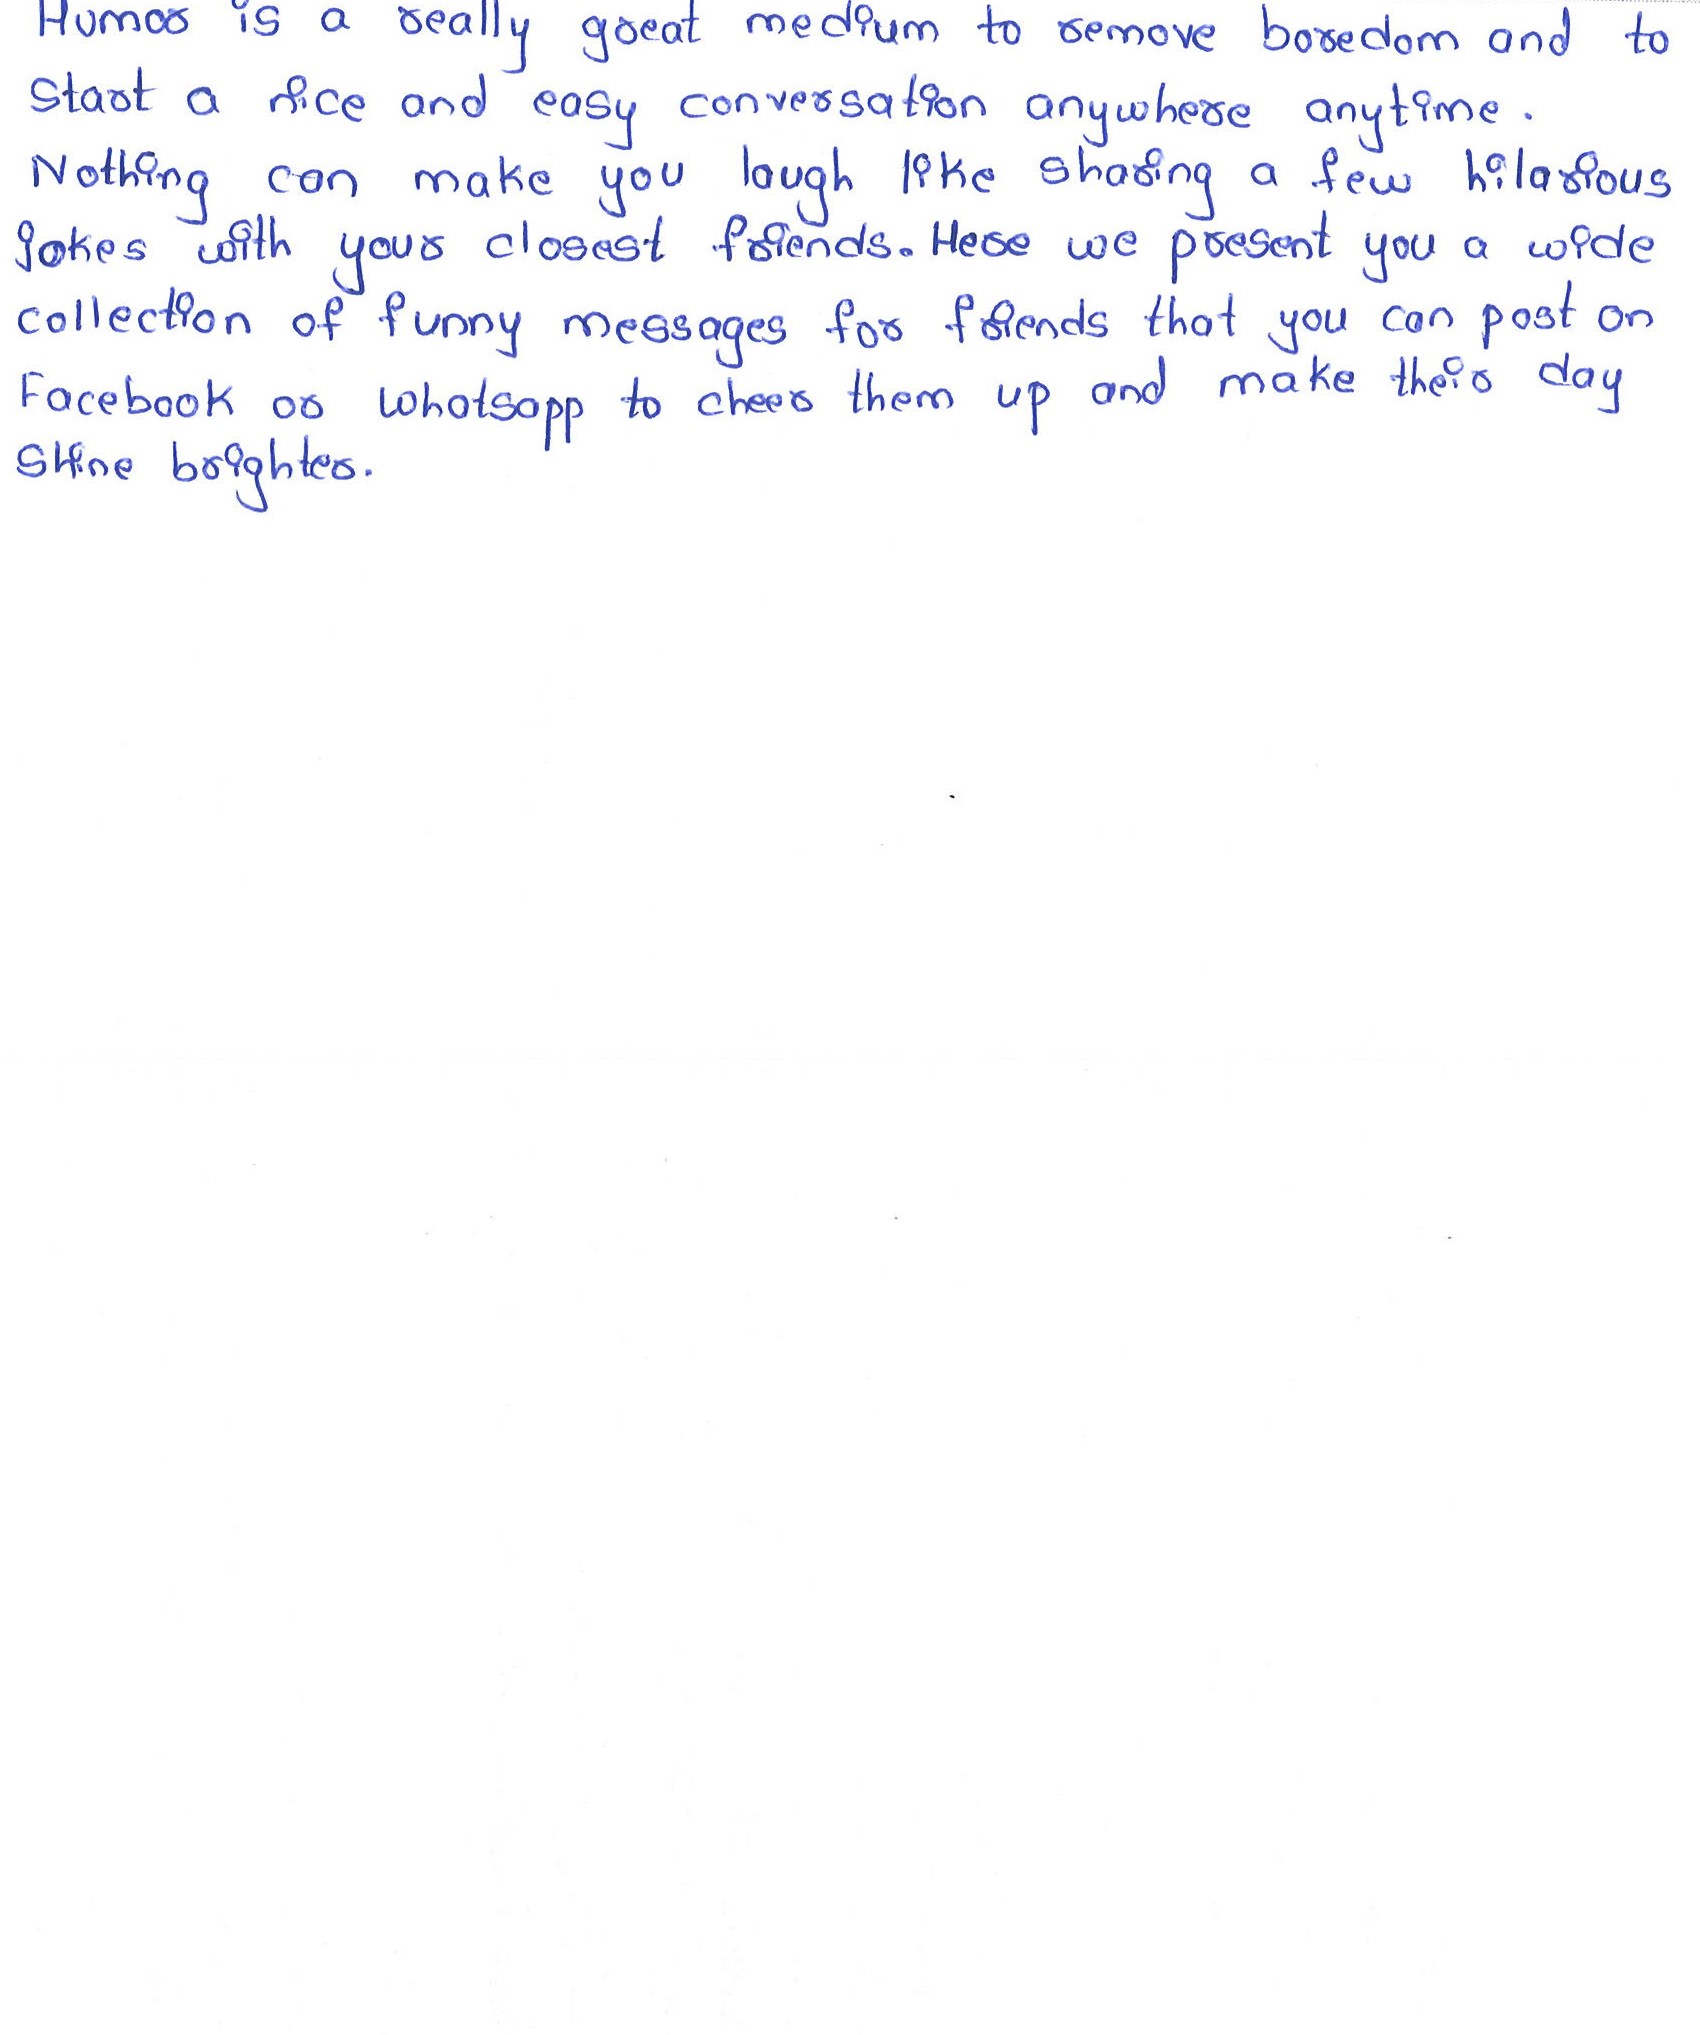 Humor is a really great medium to remove boredom and to
start a nice and easy conversation anywhere anytime.
Nothing can make you laugh like sharing a few hilarious
jokes with your closest friends. Here we present you a wide
collection of funny messages for friends that you can post on
Facebook or whatsapp to cheer them up and make their day
Shine brighter.